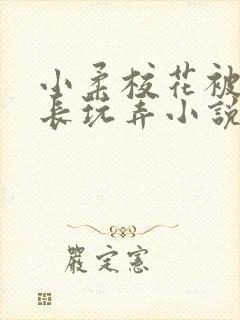 小柔校花被
長玩弄小說
嚴定憲